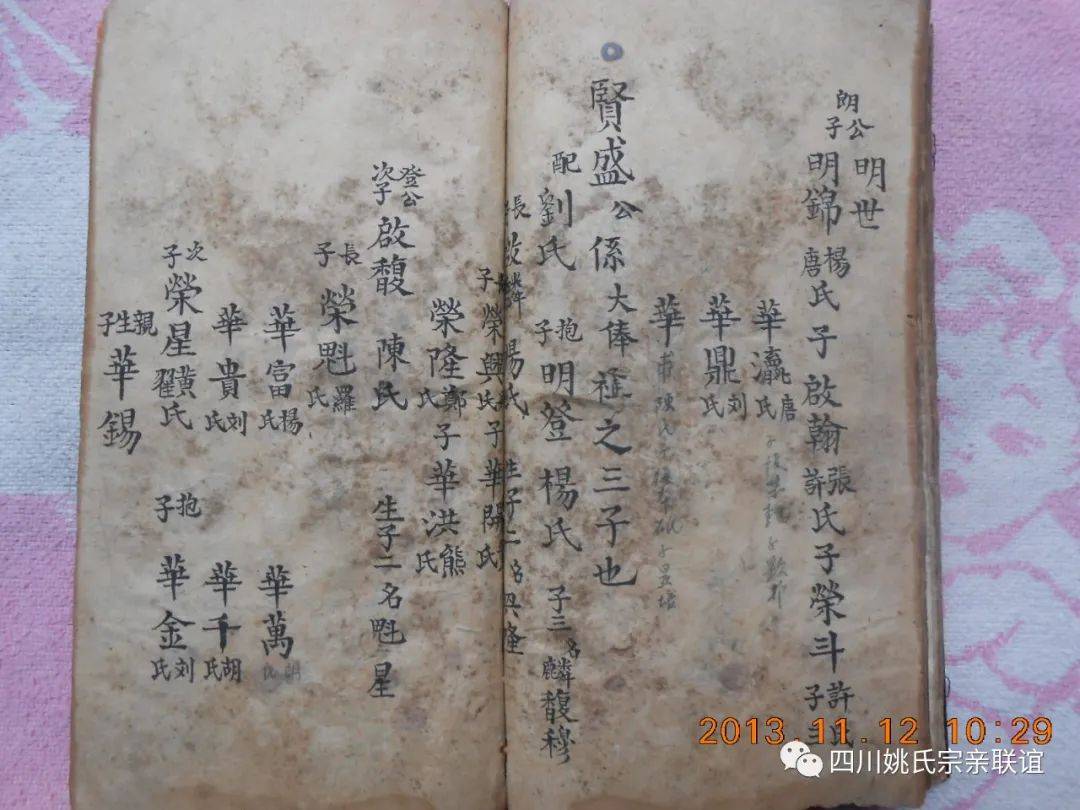 明世
朗公子 明錦 楊唐氏 子啟翰 張許氏 子榮斗 許氏 子三
華瀛 唐氏
華鼎 刘氏
華 陳氏
賢盛公係大俸祖之三子也
配劉氏 抱子明登 楊氏 子三名麟馥穆
長 楊氏 生子二名興隆
子榮興 氏 子華開 氏
榮隆 鄭氏 子華洪 熊氏
登公次子 啟馥 陳氏 生子二名魁星
長子 榮魁 羅氏
華富 楊氏 華萬 胡氏
華貴 刘氏 華千 胡氏
次子 榮星 黃翟氏 抱子 華金 刘氏
親生子 華錫
2013.11.12 10:29
四川姚氏宗亲联谊